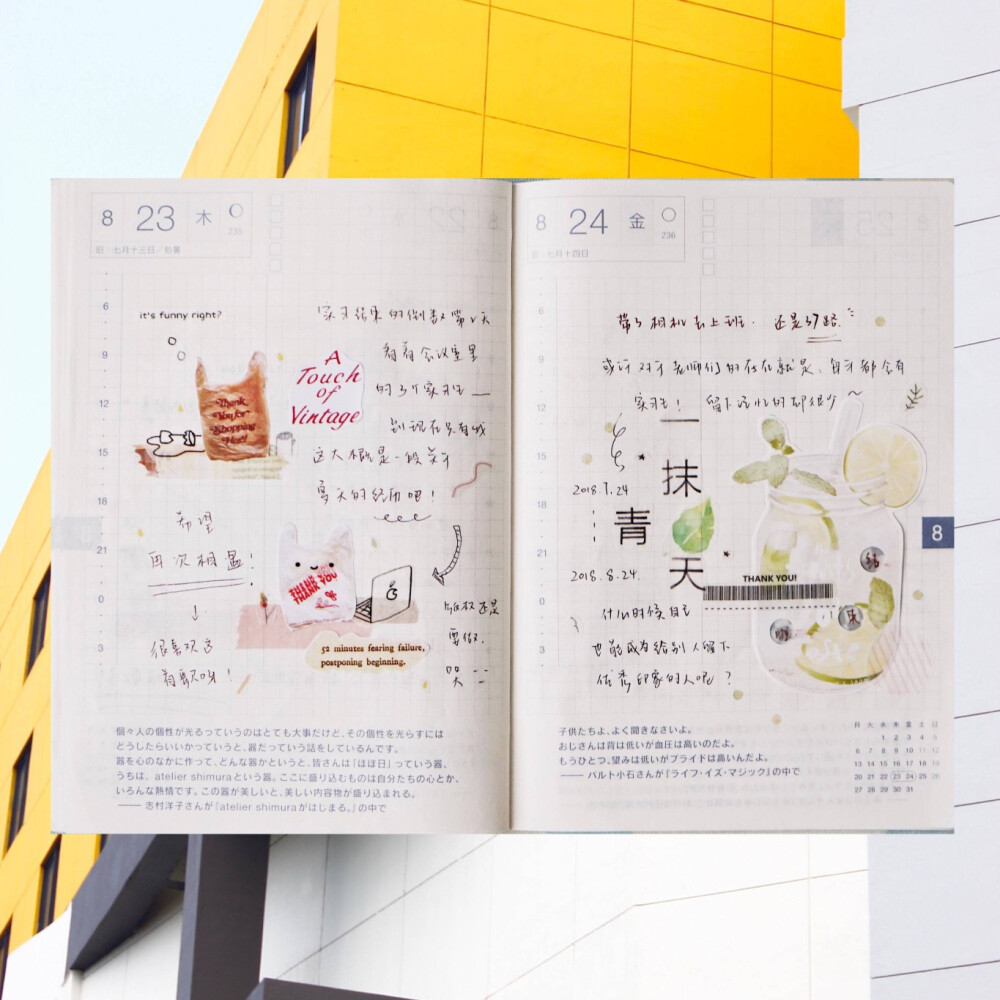 8 23 木
235
旧:七月十三日/処暑
6
9
12
15
18
21
0
3
it's funny right?
Thank
You for
Shopping
Here!
A
Touch
of
Vintage
实习结束的倒数第2天
看看会议室里
的3个实习生
别现在只有我
这大概是一段
夏天的经历吧!
希望
再次相遇!
↓
很喜欢这
首歌呀!
THANK YOU
THANK YOU
52 minutes fearing failure,
postponing beginning.
还是
要做.
哭
個々人の個性が光るっていうのはとても大事だけど、その個性を光らすには
どうしたらいいかっていうと、器だっていう話をしているんです。
器を心のなかに作って、どんな器かというと、皆さんは「ほぼ日」っていう器、
うちは、atelier shimuraという器。ここに盛り込むものは自分たちの心とか、
いろんな熱情です。この器が美しいと、美しい内容物が盛り込まれる。
—— 志村洋子さんが『atelier shimuraがはじまる。』の中で
8 24 金
236
旧:七月十四日
6
9
12
15
18
21
0
3
带了相机去上班. 还是37路.
或许对于老师们的存在就是、每年都会有
实习生! 留下记忆的却很少~
一抹
青天
2018.7.24
2018.8.24.
THANK YOU!
结
束
什么时候自己
也能成为给别人留下
优秀印象的人呢?
8
子供たちよ、よく聞きなさいよ。
おじさんは背は低いが血圧は高いのだよ。
もうひとつ、望みは低いがプライドは高いんだよ。
—— パルト小石さんが『ライフ・イズ・マジック』の中で
月 火 水 木 金 土 日
1 2 3 4 5
6 7 8 9 10 11 12
13 14 15 16 17 18 19
20 21 22 23 24 25 26
27 28 29 30 31